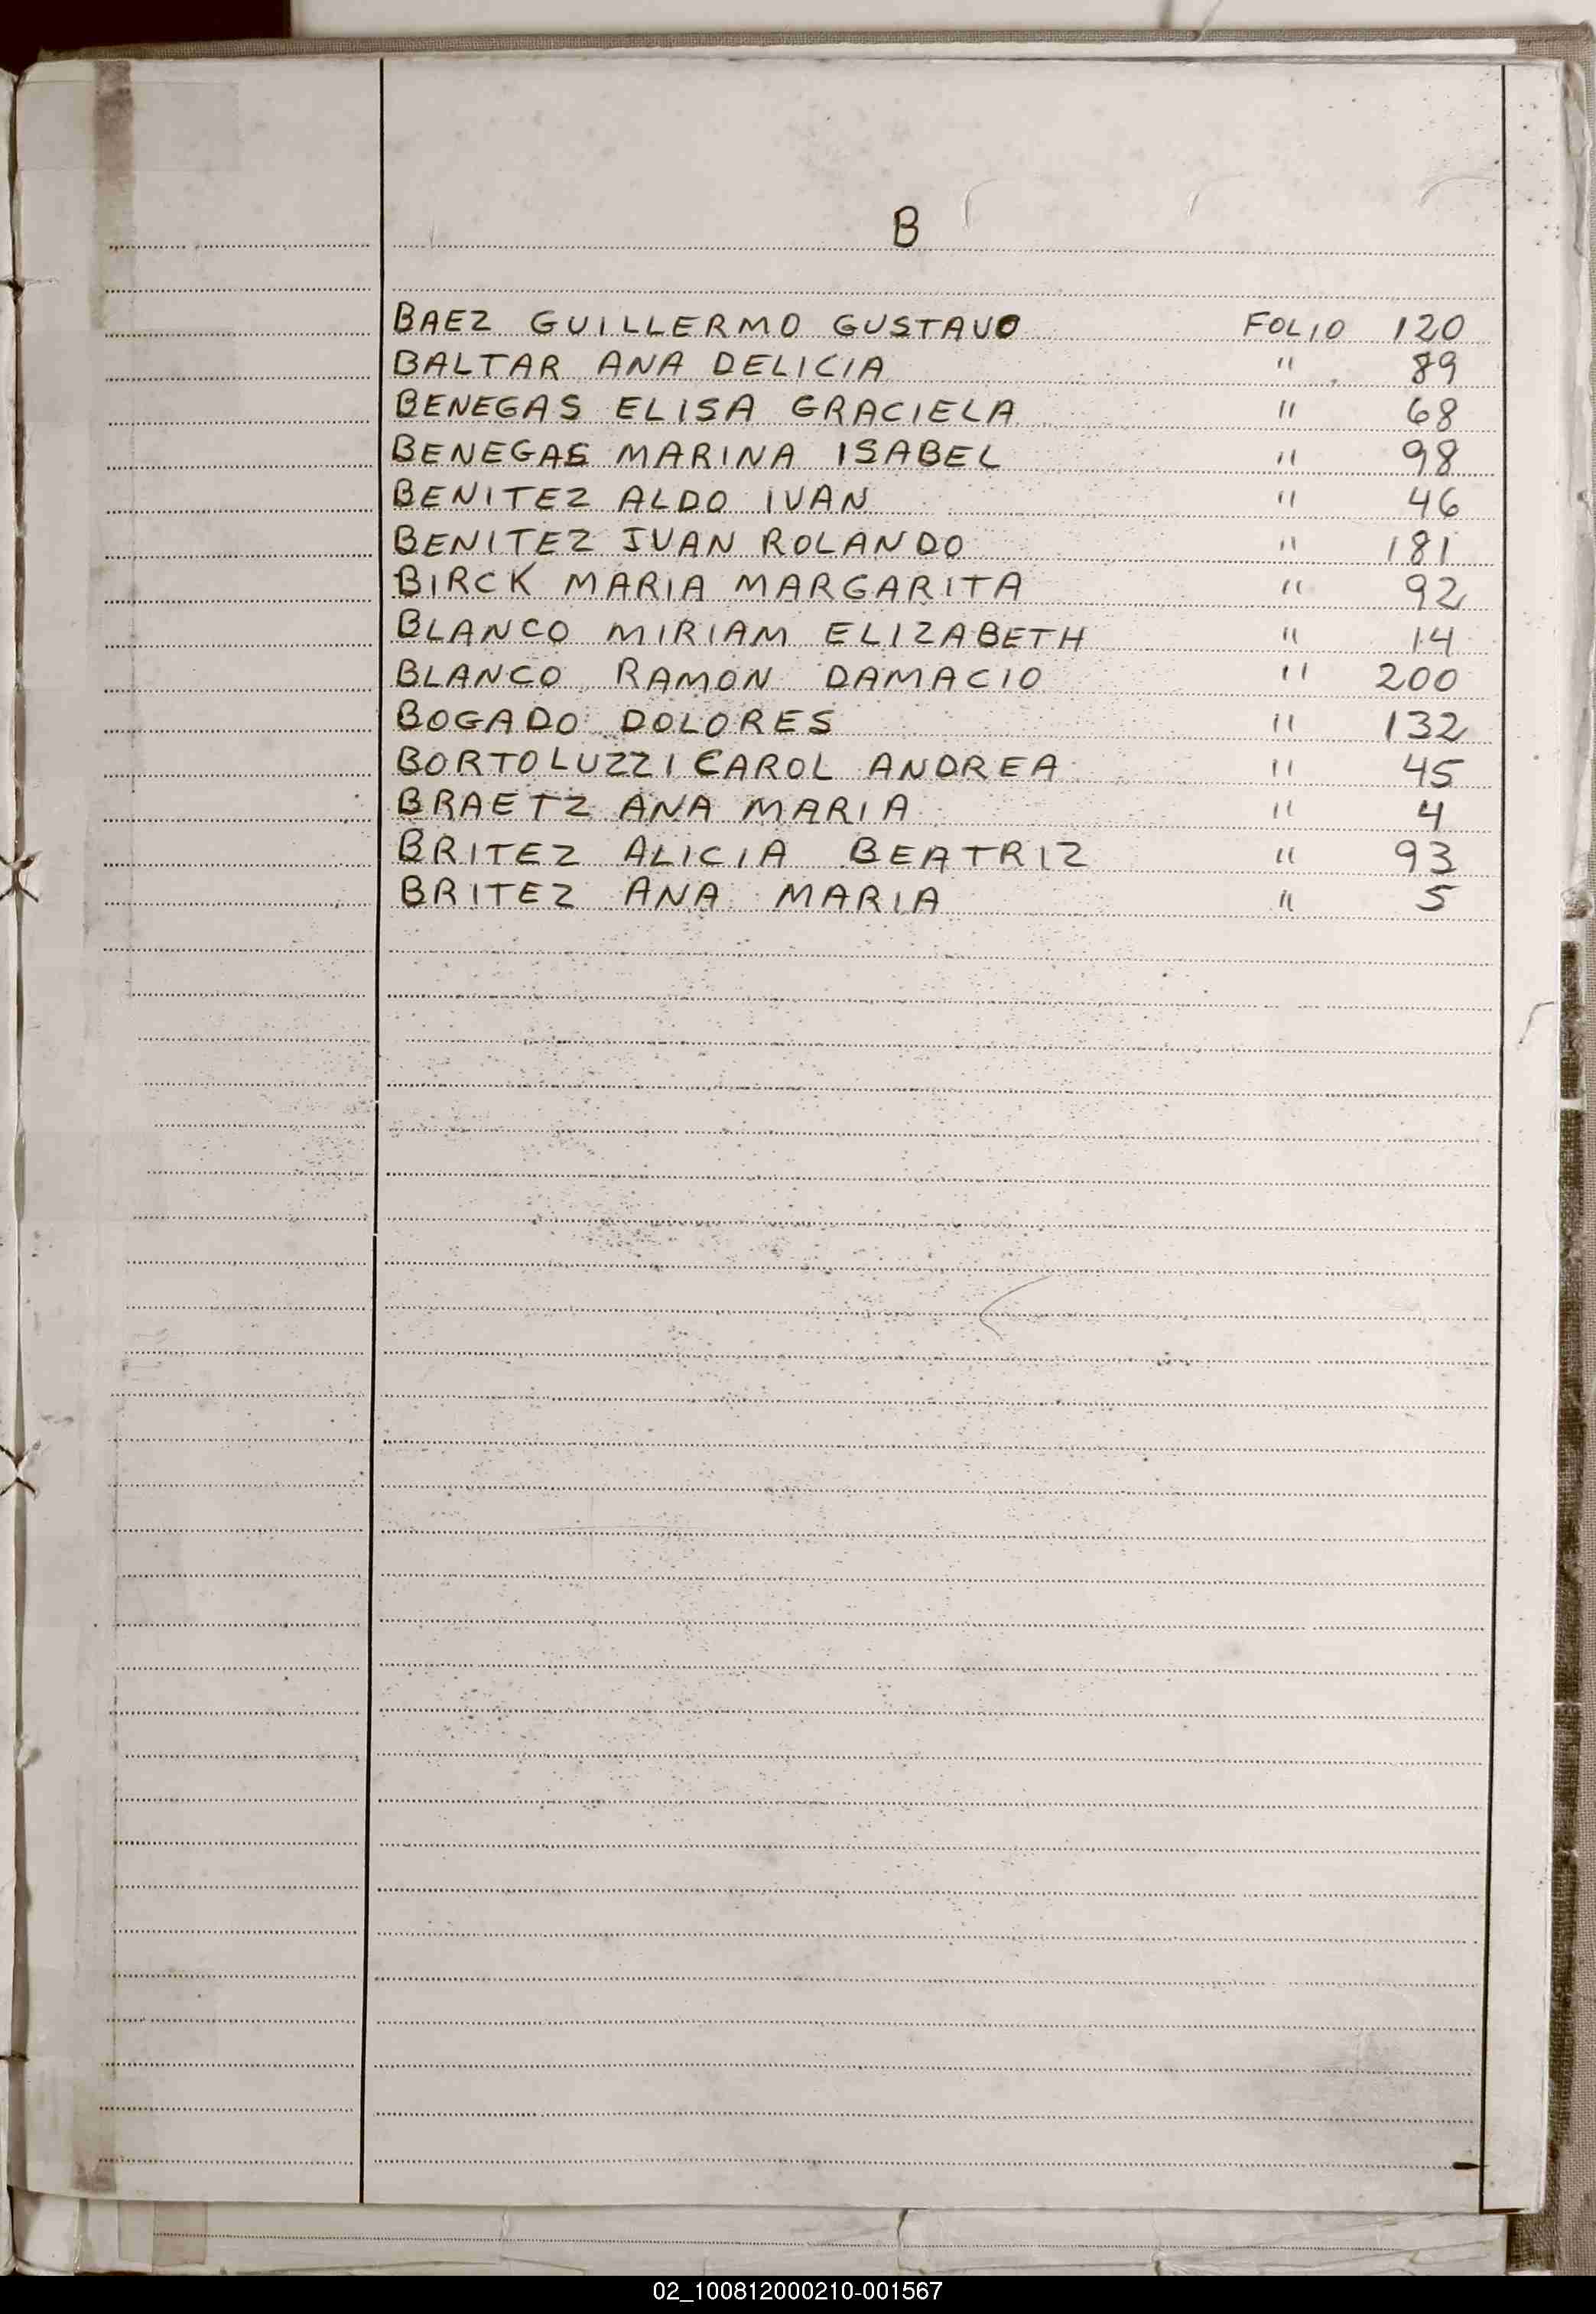 B
BAEZ GUILLERMO GUSTAVO FOLIO 120
BALTAR ANA DELICIA " 89
BENEGAS ELISA GRACIELA " 68
BENEGAS MARINA ISABEL " 98
BENITEZ ALDO IVAN " 46
BENITEZ JUAN ROLANDO " 181
BIRCK MARIA MARGARITA " 92
BLANCO MIRIAM ELIZABETH " 14
BLANCO RAMON DAMACIO " 200
BOGADO DOLORES " 132
BORTOLUZZI CAROL ANDREA " 45
BRAETZ ANA MARIA " 4
BRITEZ ALICIA BEATRIZ " 93
BRITEZ ANA MARIA " 5
02_100812000210-001567